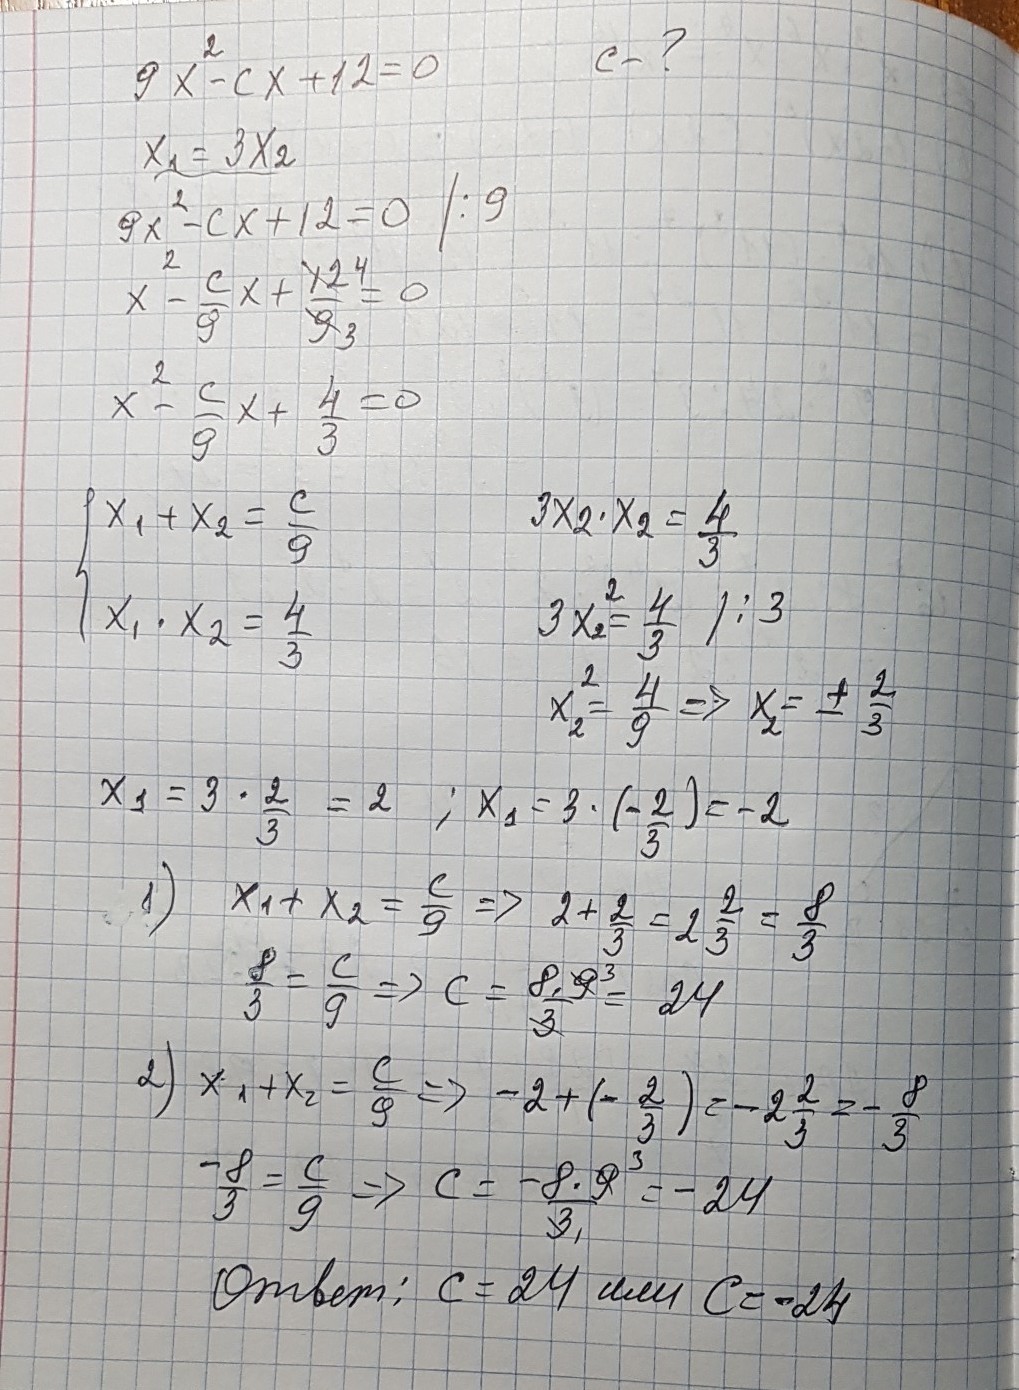 9x² - cx + 12 = 0   c - ?
x₁ = 3x₂
9x² - cx + 12 = 0 /: 9
x² - c/9 x + 12/9 4/3 = 0
x² - c/9 x + 4/3 = 0
{ x₁ + x₂ = c/9
x₁ · x₂ = 4/3
3x₂ · x₂ = 4/3
3x₂² = 4/3 /: 3
x₂² = 4/9 => x₂ = ± 2/3
x₁ = 3 · 2/3 = 2 ; x₁ = 3 · (-2/3) = -2
1) x₁ + x₂ = c/9 => 2 + 2/3 = 2 2/3 = 8/3
8/3 = c/9 => c = 8·9³/3 = 24
2) x₁ + x₂ = c/9 => -2 + (-2/3) = -2 2/3 = -8/3
-8/3 = c/9 => c = -8·9³/3₁ = -24
Ответ: c = 24 или c = -24